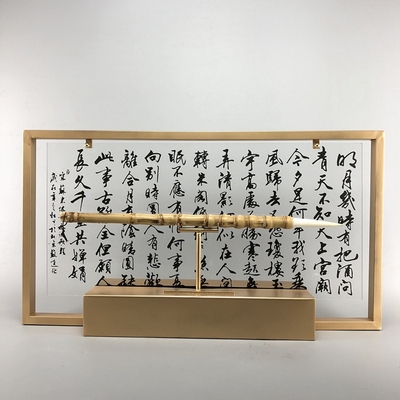 明月幾時有把酒問
青天不知天上宮闕
今夕是何年我欲乘
風歸去又恐瓊樓玉
宇高處不勝寒起舞
弄清影何似在人間
轉朱閣
眠不應有何事長
向別時圓人有悲歡
離合月有陰晴圓缺
此事古難全但願人
長久千里共嬋娟